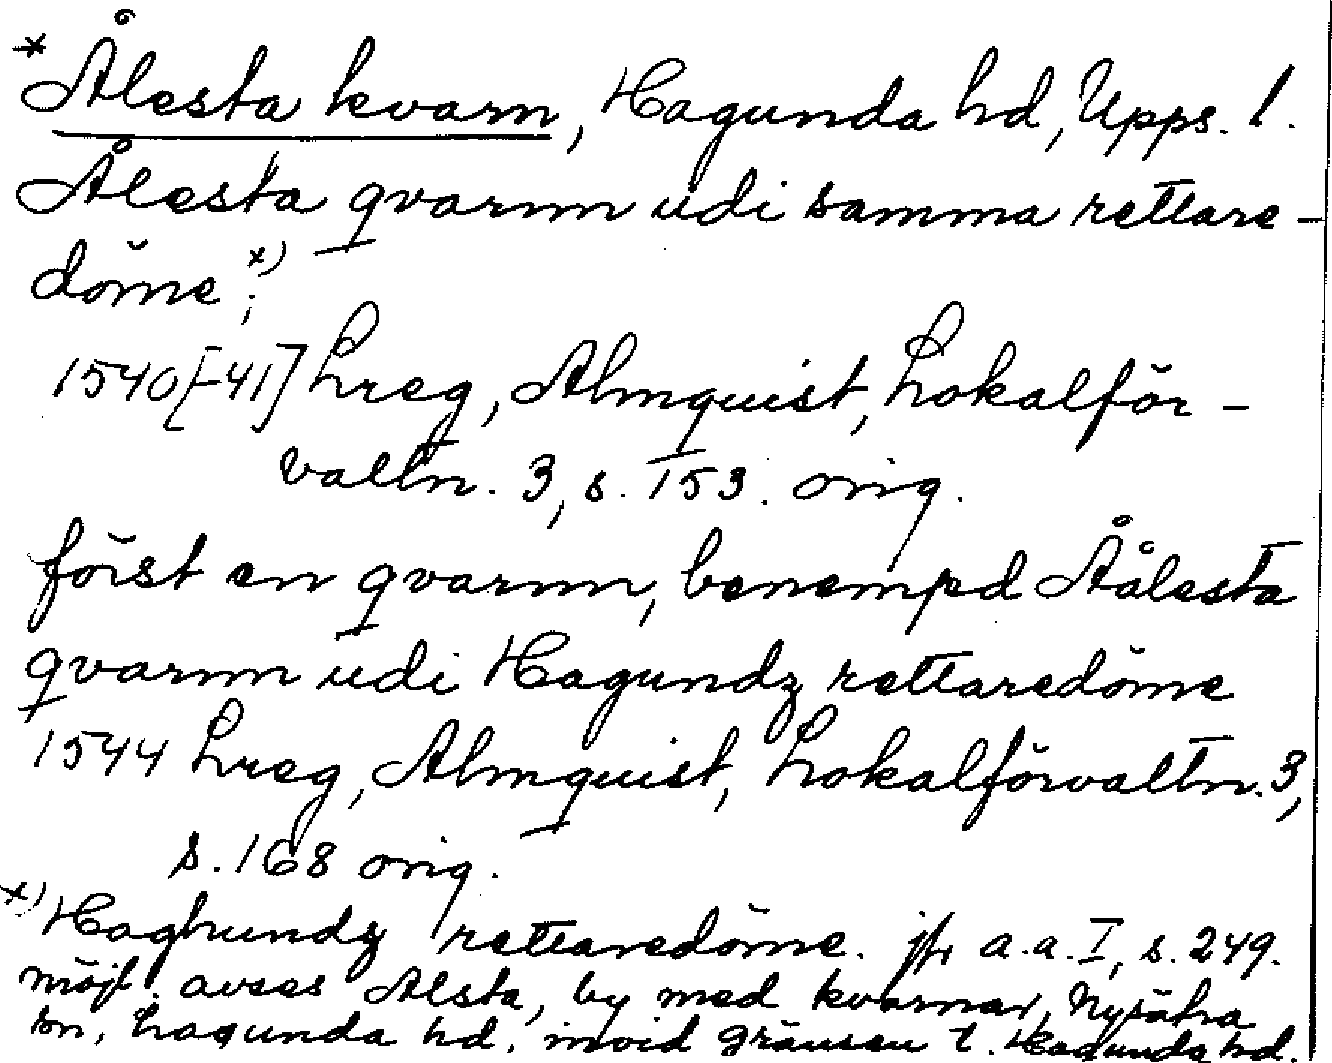 *Ålesta kvarn, Hagunda hd, Upps. l.
Ålesta qvarnn udi samma rettare-
döme;x)
1540[-41] Lreg, Almquist, Lokalför-
valtn. 3, s. 153. orig.
först en qvarnn, benempd Åålesta
qvarnn udi Hagundz rettaredöme
1544 Lreg, Almquist, Lokalförvaltn. 3,
s. 168 orig.
x) Haghundz rettaredöme. jfr a.a. I, s. 249.
möjl. avses Alsta, by med kvarnar, Nysätra
sn, Lagunda hd, invid gränsen t. Hagunda hd.